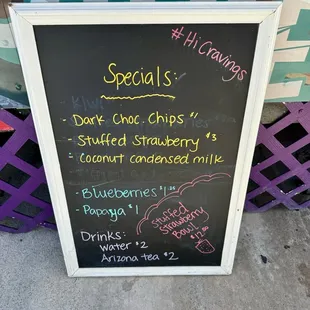 # Hi Cravings
Specials:
- Dark Choc. Chips $1
- Stuffed Strawberry $3
- Coconut condensed milk
- Blueberries $1.25
- Papaya $1
Stuffed
Strawberry
Bowl
$12.00
Drinks:
Water $2
Arizona tea $2